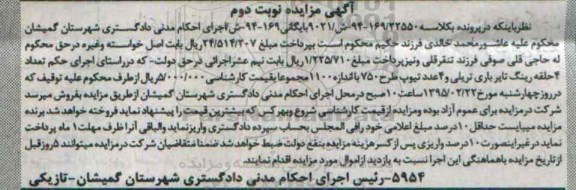 آگهی مزایده نوبت دوم
نظر باینکه در پرونده بکلاسه ۹۴-۱۶۹/۳۲۵۵۰-ش/۹۰۲۱ بایگانی ۱۶۹-۹۴-ش اجرای احکام مدنی دادگستری شهرستان گمیشان
محکوم علیه عاشور محمد خالدی فرزند حکیم محکوم است بپرداخت مبلغ ۲۴/۵۱۴/۲۰۷ ریال بابت اصل خواسته وغیره در حق محکوم
له حاجی قلی صوفی فرزند تنقرقلی ونیز پرداخت مبلغ ۱/۲۲۵/۷۱۰ ریال بابت نیم عشر اجرائی در حق دولت- که در راستای اجرای حکم تعداد
۴ حلقه رینگ تایر باری تریلی و ۴ عدد تیوپ طرح ۷۵۰ با اندازه ۱۱۰۰ مجموعا بقیمت کارشناسی ۵/۰۰۰/۰۰۰ ریال از طرف محکوم علیه توقیف که
در روز چهارشنبه مورخ ۱۳۹۵/۰۲/۲۲ ساعت ۱۰ صبح در محل اجرای احکام مدنی دادگستری شهرستان گمیشان از طریق مزایده بفروش میرسد
شرکت در مزایده برای عموم آزاد بوده ومزایده از قیمت کارشناسی شروع وبهر کس که بیشترین قیمت را پیشنهاد نماید فروخته خواهد شد برنده
مزایده میبایست حداقل ۱۰ درصد مبلغ اعلامی خود را فی المجلس بحساب سپرده دادگستری واریز نماید والباقی آنرا ظرف مهلت ۱ ماه پرداخت
نماید در غیر اینصورت ۱۰ درصد واریزی پس از کسر هزینه مزایده بنفع دولت ضبط خواهد شد ضمنا متقاضیان شرکت در مزایده میتوانند ۵ روز قبل
از تاریخ مزایده با هماهنگی این اجرا نسبت به بازدید از اموال مورد مزایده اقدام نمایند.
۵۹۵۴-رئیس اجرای احکام مدنی دادگستری شهرستان گمیشان-تازیکی